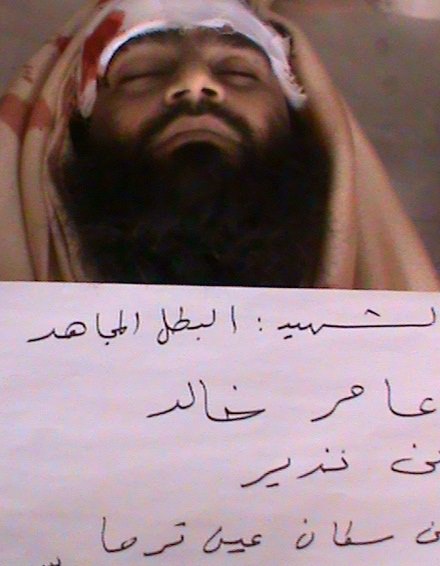 لشهيد : البطل المجاهد
عامر خالد
نذير
سكان عين ترما